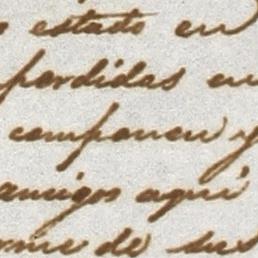 o estado en
perdidas en
componen y
amigos aqui
orme de sus